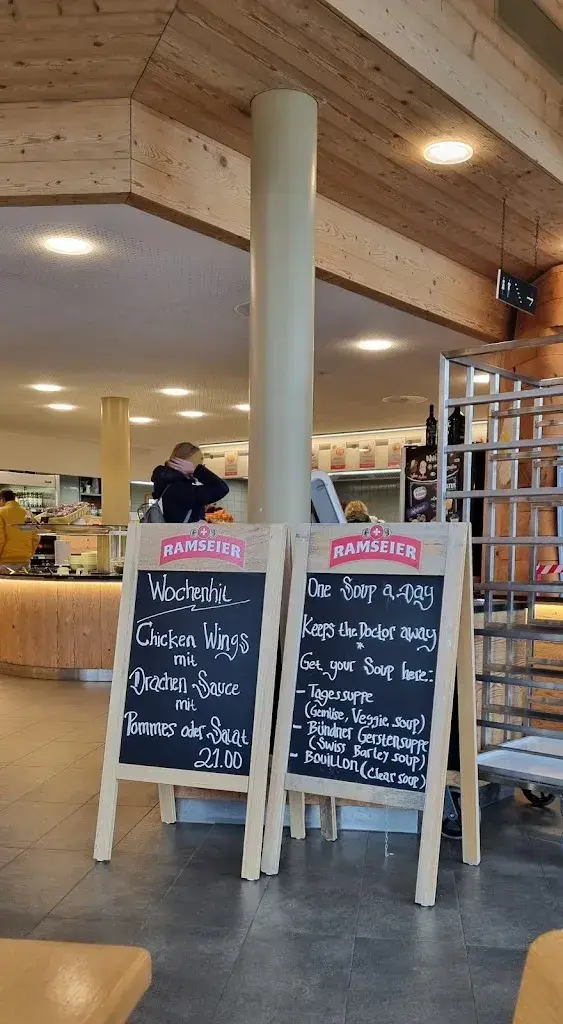 RAMSEIER
Wochenhit
Chicken Wings
mit
Drachen Sauce
mit
Pommes oder Salat
21.00
RAMSEIER
One Soup a Day
Keeps the Doctor away
*
Get your Soup here:
- Tagessuppe
(Gemüse, Veggie soup)
- Bündner Gerstensuppe
(Swiss Barley soup)
- Bouillon (clear soup)